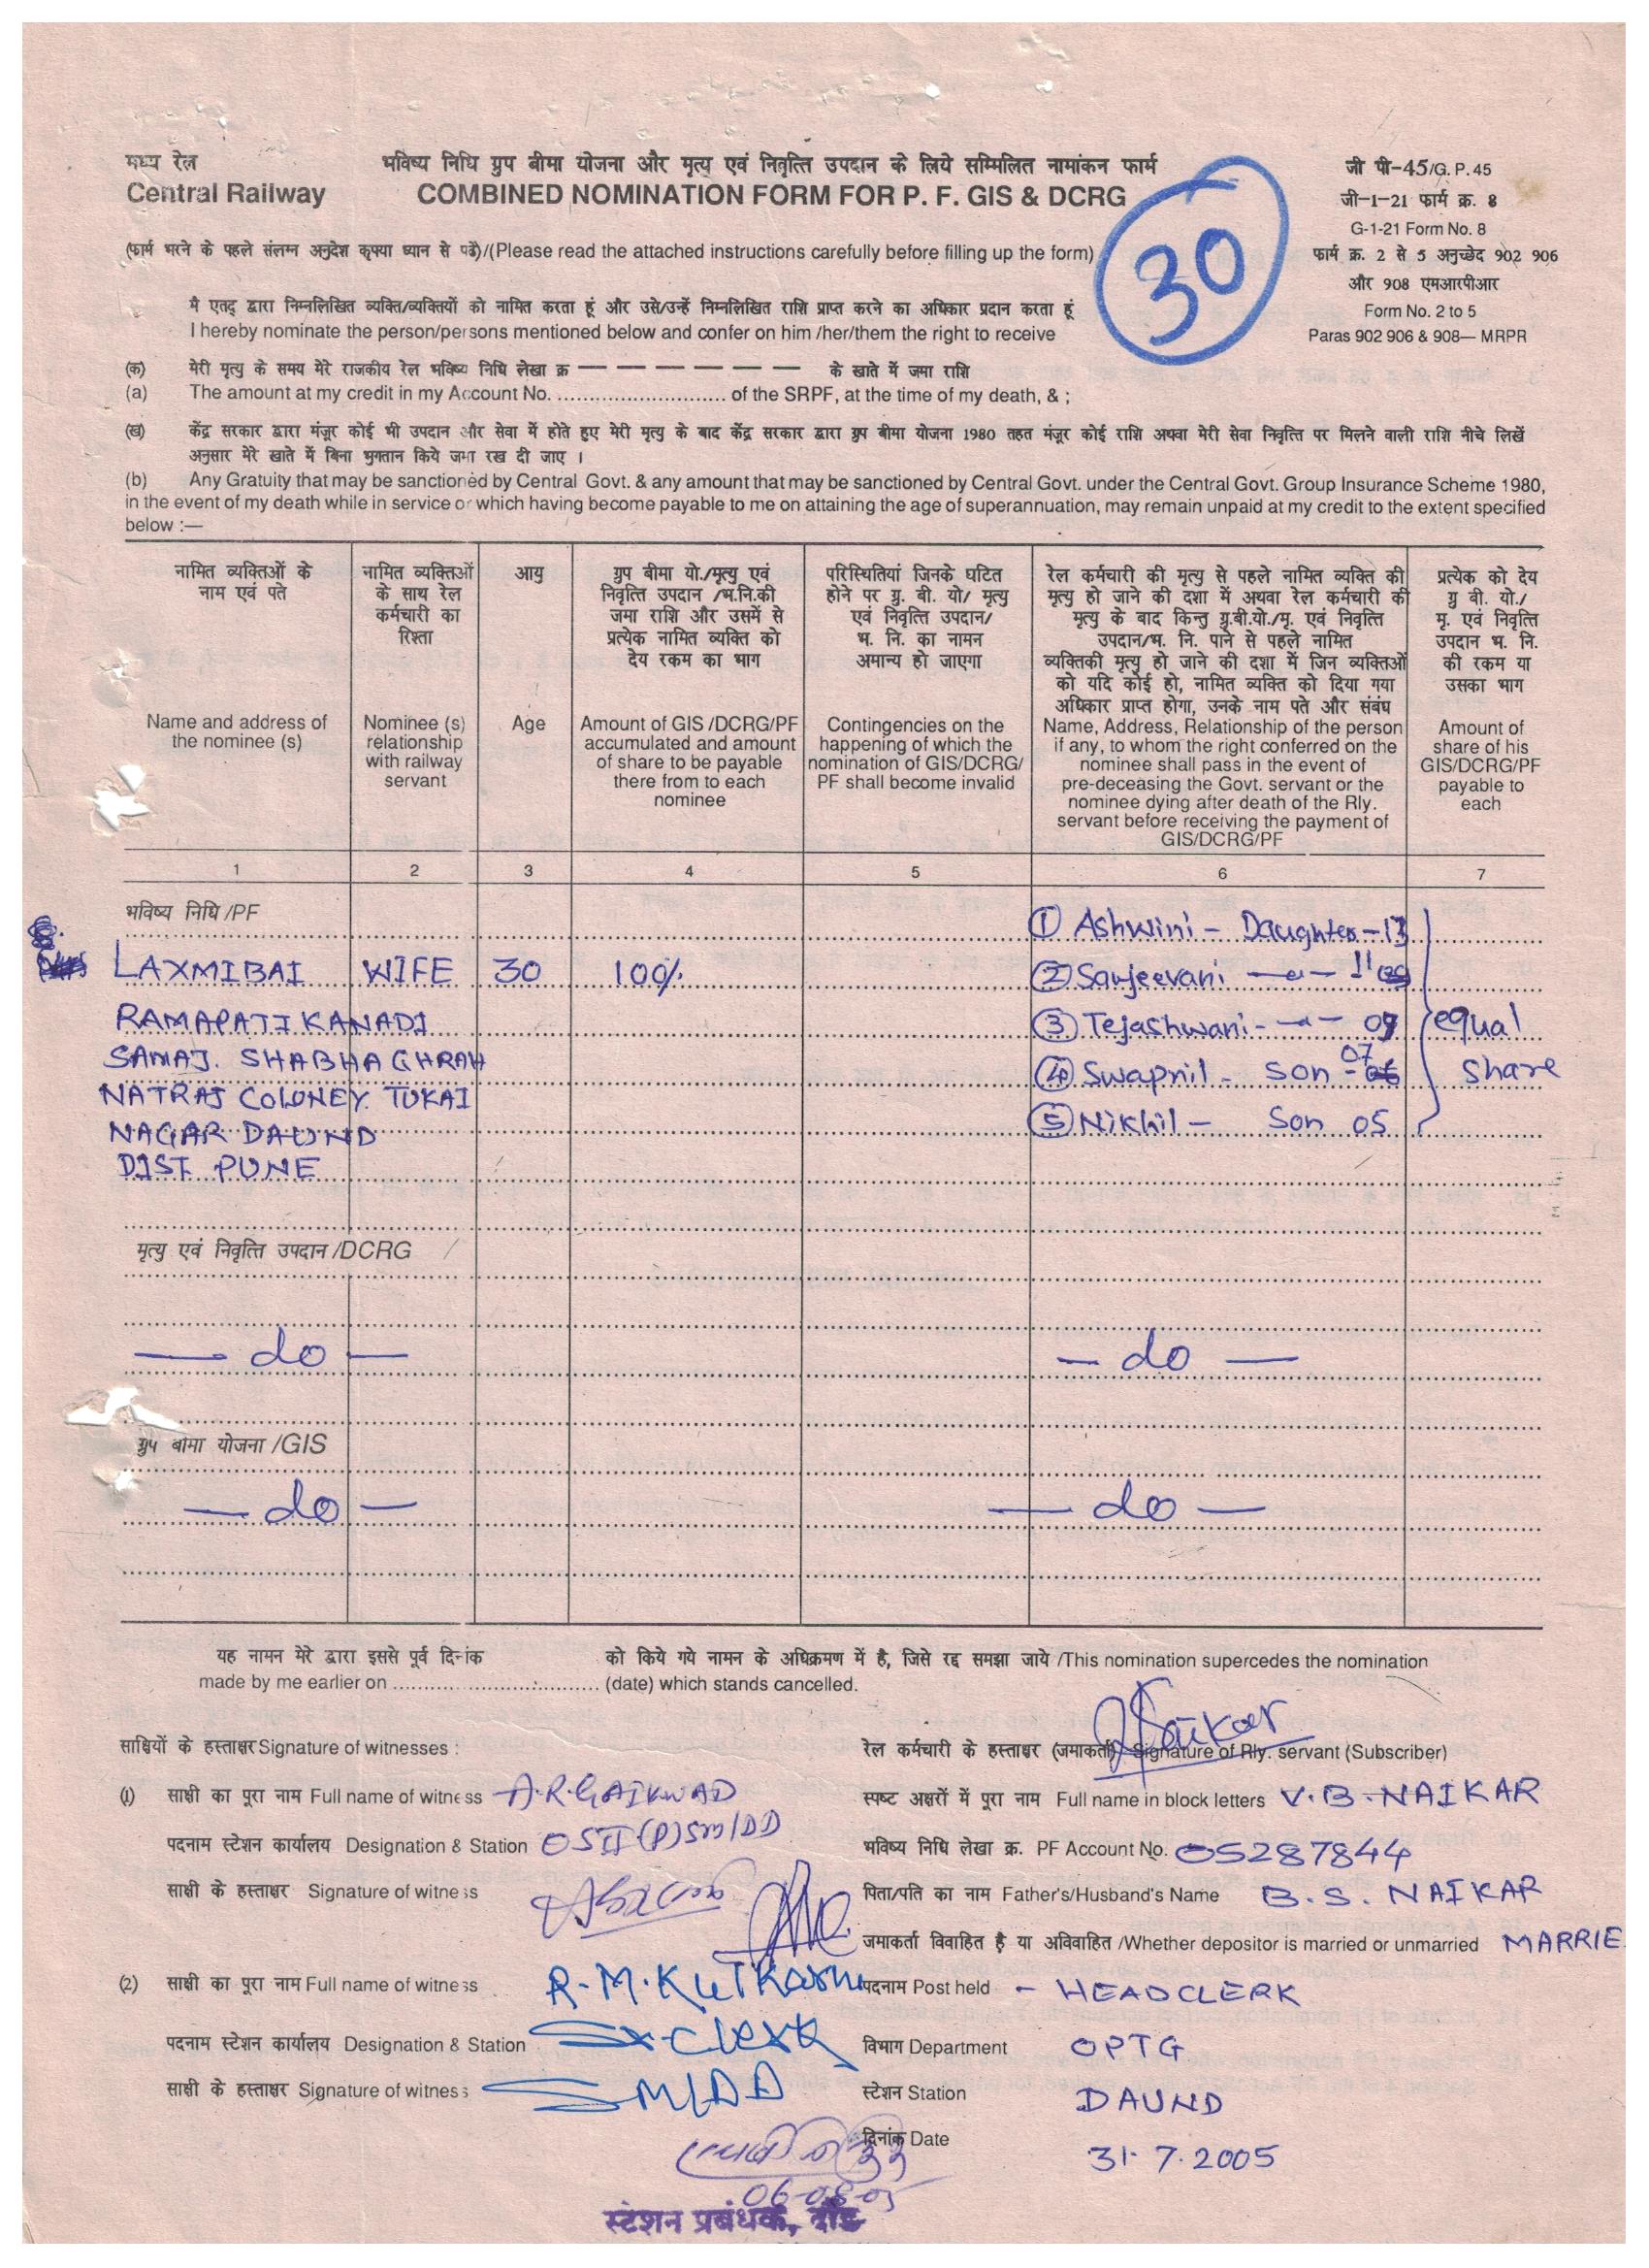 मध्य रेल
Central Railway
भविष्य निधि ग्रुप बीमा योजना और मृत्यु एवं निवृत्ति उपदान के लिये सम्मिलित नामांकन फार्म
COMBINED NOMINATION FORM FOR P. F. GIS & DCRG
जी पी-45/G. P. 45
जी-1-21 फार्म क्र. 8
G-1-21 Form No. 8
फार्म क्र. 2 से 5 अनुच्छेद 902 906
और 908 एमआरपीआर
Form No. 2 to 5
Paras 902 906 & 908— MRPR
30
(फार्म भरने के पहले संलग्न अनुदेश कृपया ध्यान से पढें)/(Please read the attached instructions carefully before filling up the form)
मै एतद् द्वारा निम्नलिखित व्यक्ति/व्यक्तियों को नामित करता हूं और उसे/उन्हें निम्नलिखित राशि प्राप्त करने का अधिकार प्रदान करता हूं
I hereby nominate the person/persons mentioned below and confer on him /her/them the right to receive
(क) मेरी मृत्यु के समय मेरे राजकीय रेल भविष्य निधि लेखा क्र — — — — — — — के खाते में जमा राशि
(a) The amount at my credit in my Account No. ............................ of the SRPF, at the time of my death, & ;
(ख) केंद्र सरकार द्वारा मंजूर कोई भी उपदान और सेवा में होते हुए मेरी मृत्यु के बाद केंद्र सरकार द्वारा ग्रुप बीमा योजना 1980 तहत मंजूर कोई राशि अथवा मेरी सेवा निवृत्ति पर मिलने वाली राशि नीचे लिखें
अनुसार मेरे खाते में बिना भुगतान किये जमा रख दी जाए ।
(b) Any Gratuity that may be sanctioned by Central Govt. & any amount that may be sanctioned by Central Govt. under the Central Govt. Group Insurance Scheme 1980,
in the event of my death while in service or which having become payable to me on attaining the age of superannuation, may remain unpaid at my credit to the extent specified
below :—
नामित व्यक्तिओं के
नाम एवं पते
Name and address of
the nominee (s)
नामित व्यक्तिओं
के साथ रेल
कर्मचारी का
रिश्ता
Nominee (s)
relationship
with railway
servant
आयु
Age
ग्रुप बीमा यो./मृत्यु एवं
निवृत्ति उपदान /भ.नि.की
जमा राशि और उसमें से
प्रत्येक नामित व्यक्ति को
देय रकम का भाग
Amount of GIS /DCRG/PF
accumulated and amount
of share to be payable
there from to each
nominee
परिस्थितियां जिनके घटित
होने पर ग्रु. बी. यो/ मृत्यु
एवं निवृत्ति उपदान/
भ. नि. का नामन
अमान्य हो जाएगा
Contingencies on the
happening of which the
nomination of GIS/DCRG/
PF shall become invalid
रेल कर्मचारी की मृत्यु से पहले नामित व्यक्ति की
मृत्यु हो जाने की दशा में अथवा रेल कर्मचारी की
मृत्यु के बाद किन्तु ग्रु.बी.यो./मृ. एवं निवृत्ति
उपदान/भ. नि. पाने से पहले नामित
व्यक्तिकी मृत्यु हो जाने की दशा में जिन व्यक्तिओं
को यदि कोई हो, नामित व्यक्ति को दिया गया
अधिकार प्राप्त होगा, उनके नाम पते और संबंध
Name, Address, Relationship of the person
if any, to whom the right conferred on the
nominee shall pass in the event of
pre-deceasing the Govt. servant or the
nominee dying after death of the Rly.
servant before receiving the payment of
GIS/DCRG/PF
प्रत्येक को देय
ग्रु बी. यो./
मृ. एवं निवृत्ति
उपदान भ. नि.
की रकम या
उसका भाग
Amount of
share of his
GIS/DCRG/PF
payable to
each
1 2 3 4 5 6 7
भविष्य निधि /PF
LAXMIBAI WIFE 30 100%
RAMAPATI KANADI
SAMAJ. SHABHAGHRAH
NATRAJ COLONEY. TUKAI
NAGAR DAUND
DIST. PUNE
① Ashwini - Daughter - 13
② Sanjeevani —"— 11
③ Tejashwani - —"— 09
④ Swapnil - son - 07
⑤ Nikhil - Son 05
equal
share
मृत्यु एवं निवृत्ति उपदान /DCRG
— do — — do —
ग्रुप बीमा योजना /GIS
— do — — do —
यह नामन मेरे द्वारा इससे पूर्व दिनांक को किये गये नामन के अधिक्रमण में है, जिसे रद्द समझा जाये /This nomination supercedes the nomination
made by me earlier on .................................. (date) which stands cancelled.
साक्षियों के हस्ताक्षर Signature of witnesses :
(1) साक्षी का पूरा नाम Full name of witness A.R.GAIKWAD
पदनाम स्टेशन कार्यालय Designation & Station OSII(P)SM/DD
साक्षी के हस्ताक्षर Signature of witness
(2) साक्षी का पूरा नाम Full name of witness R.M.Kulkarni
पदनाम स्टेशन कार्यालय Designation & Station Sr-Clerk
साक्षी के हस्ताक्षर Signature of witness SM/DD
रेल कर्मचारी के हस्ताक्षर (जमाकर्ता) Signature of Rly. servant (Subscriber)
स्पष्ट अक्षरों में पूरा नाम Full name in block letters V.B.NAIKAR
भविष्य निधि लेखा क्र. PF Account No. 05287844
पिता/पति का नाम Father's/Husband's Name B.S. NAIKAR
जमाकर्ता विवाहित है या अविवाहित /Whether depositor is married or unmarried MARRIE
पदनाम Post held - HEADCLERK
विभाग Department OPTG
स्टेशन Station DAUND
दिनांक Date 31.7.2005
06-08-05
स्टेशन प्रबंधक, दौंड